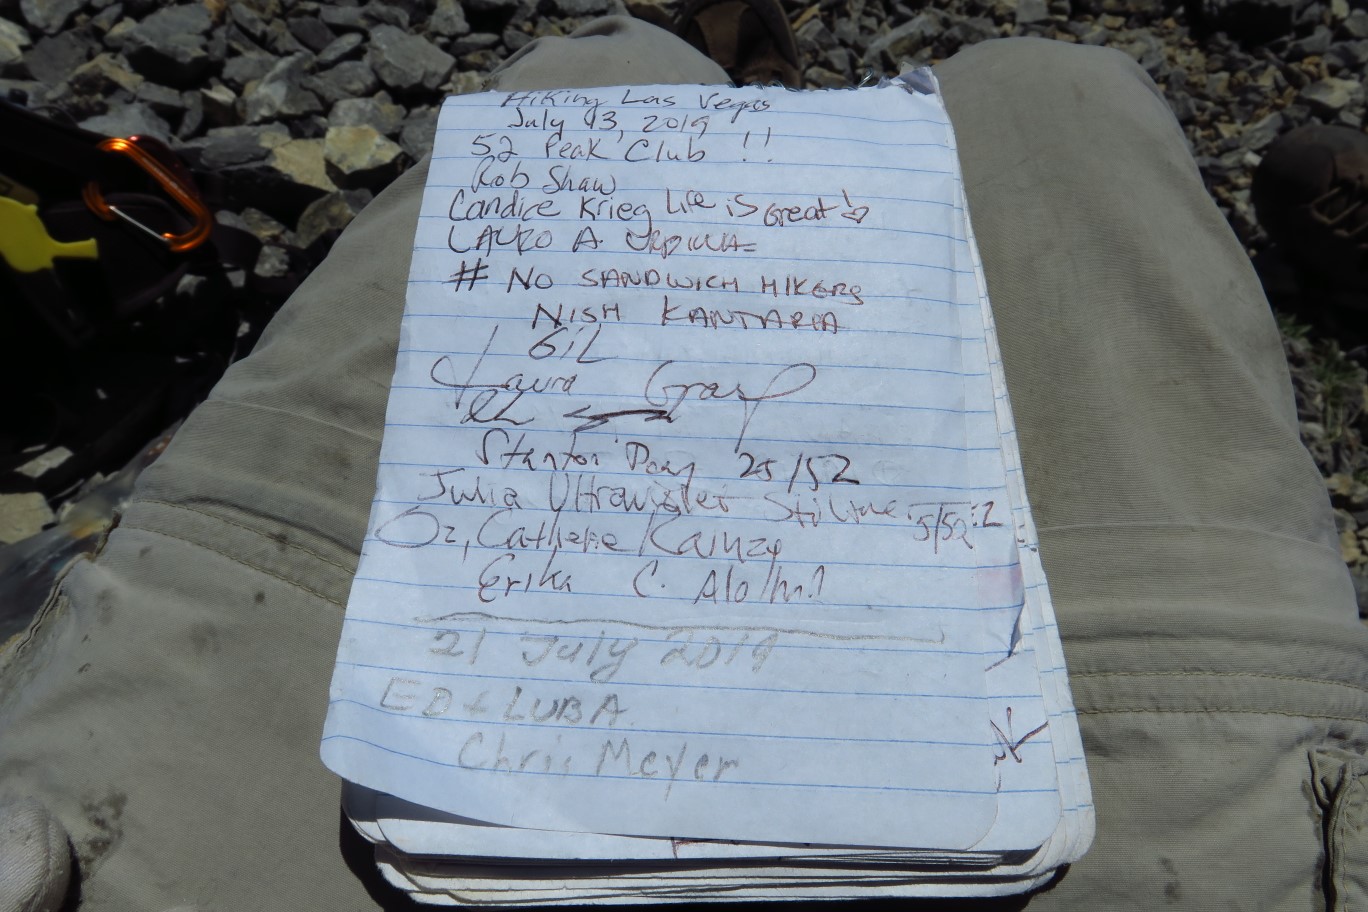 Hiking Las Vegas
July 13, 2019
52 Peak Club !!
Rob Shaw
Candice Krieg Life is Great
LAURO A.
# NO SANDWICH HIKERS
NISH KANTARIA
Gil
Laura Gray
25/52
Julia 5/52
Oz, Catherine
Erika C.
21 July 2019
ED + LUBA
Chris Meyer